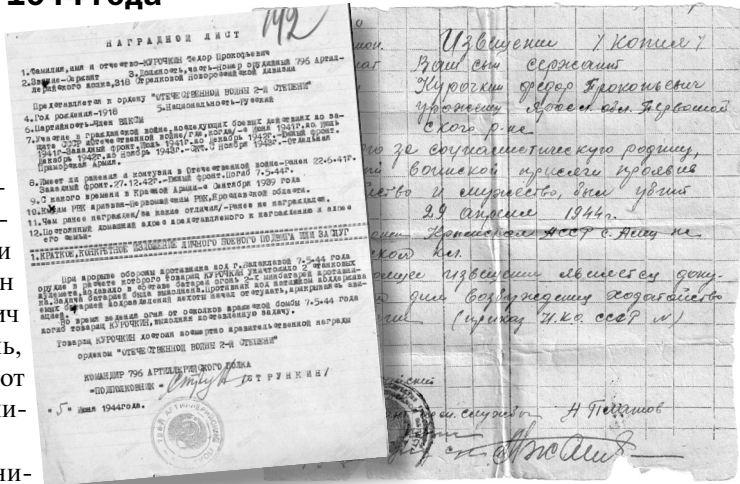 1944 года
192
НАГРАДНОЙ ЛИСТ
1.Фамилия,имя и отчество-КУРОЧКИН Федор Прокопьевич
2.Звание-Сержант 3.Должность,часть-Номер орудийный 796 Артил-
лерийского полка,318 Стрелковой Новороссийской дивизии
Представляется к ордену "ОТЕЧЕСТВЕННОЙ ВОЙНЫ 2-Й СТЕПЕНИ"
4.Год рождения-1918 5.Национальность-Русский
6.Партийность-Член ВЛКСМ
7.Участие в гражданской войне,последующих боевых действиях по за-
щите СССР и отечественной войне/где,когда/-с Июня 1941г.по Июль
1941г-Западный фронт.
Приморская Армия.
8.Имеет ли ранения и контузии в Отечественной войне-Ранен 22.6.41г.
Западный фронт.27.12.42г.-Южный фронт.Погиб 7.5.44г.
9.С какого времени в Красной Армии-с Сентября 1939 года
10.Каким РВК призван-Первомайским РВК,Ярославской области.
11.Чем ранее награжден/за какие отличия/-Ранее не награжден.
12.Постоянный домашний адрес представляемого к награждению и адрес
его семьи-
1.КРАТКОЕ,КОНКРЕТНОЕ ИЗЛОЖЕНИЕ ЛИЧНОГО БОЕВОГО ПОДВИГА ИЛИ ЗАСЛУГ
При прорыве обороны противника под г.Балаклавой 7-5-44 года
орудие в расчете которого товарищ КУРОЧКИН уничтожило 2 станковых
пулемета,подавило в составе батареи огонь 2-х минбатарей противни-
ка.Задача батареей была выполнена.Противник под натиском поддержива
емых батареей подразделений пехоты начал отступать,прикрываясь ави-
ацией.
Во время ведения огня от осколков вражеской бомбы 7-5-44 года
погиб товарищ КУРОЧКИН,выполняя поставленную задачу.
Товарищ КУРОЧКИН достоин посмертно правительственной награды
орденом "ОТЕЧЕСТВЕННОЙ ВОЙНЫ 2-Й СТЕПЕНИ"
КОМАНДИР 796 АРТИЛЛЕРИЙСКОГО ПОЛКА
-ПОДПОЛКОВНИК- /СТРУНКИН/
"5" Июня 1944года.
Извещение /копия/
Ваш сын сержант
Курочкин федор Прокопьевич
уроженец Яросл. обл. Первомай
ского р-на
за социалистическую родину,
воинской присяге проявив
и мужество, был убит
29 апреля 1944г.
АССР с.
извещение является доку-
для возбуждения ходатайства
(приказ Н.К.о. ссср №)
и
н
ич
ь,
от
и-
ни-